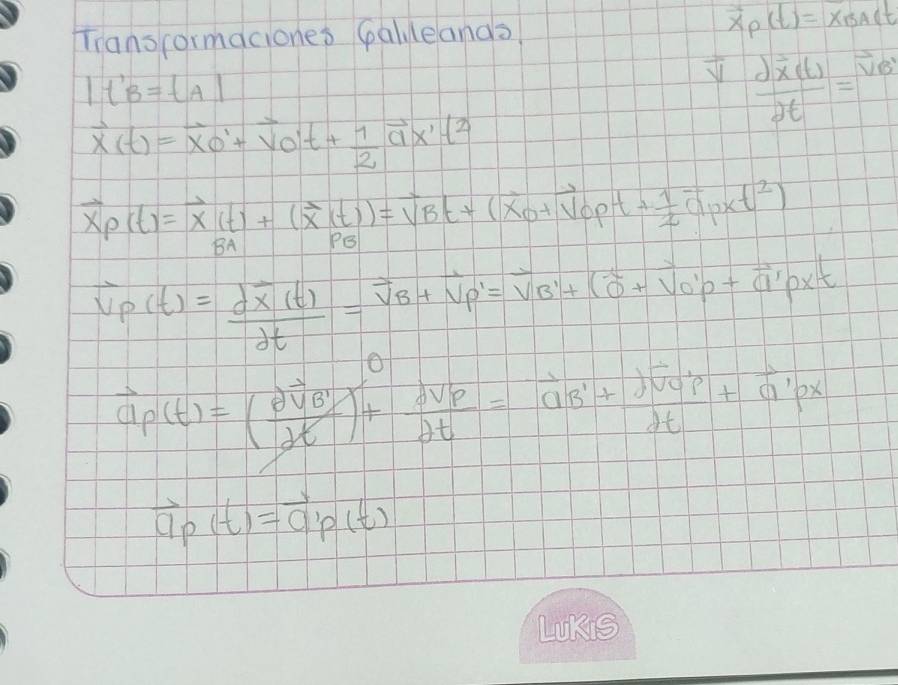 Transformaciones Galileanas.
x⃗p(t) = x⃗BA(t
| t'B = tA |
v⃗ ∂x⃗(t)/∂t = v⃗B'
x⃗(t) = x⃗o' + v⃗o't + 1/2 a⃗x't²
x⃗p(t) = x⃗(t)BA + (x⃗(t))PB = v⃗Bt + (x⃗o + v⃗opt + 1/2 a⃗pxt²)
v⃗p(t) = ∂x⃗(t)/∂t = v⃗B + v⃗p' = v⃗B' + (0⃗ + v⃗o'p + a⃗'pxt
a⃗p(t) = (∂v⃗B'/∂t)⁰ + ∂vp/∂t = a⃗B' + ∂v⃗o'p/∂t + a⃗'px
a⃗p(t) = a⃗'p(t)
LUKIS